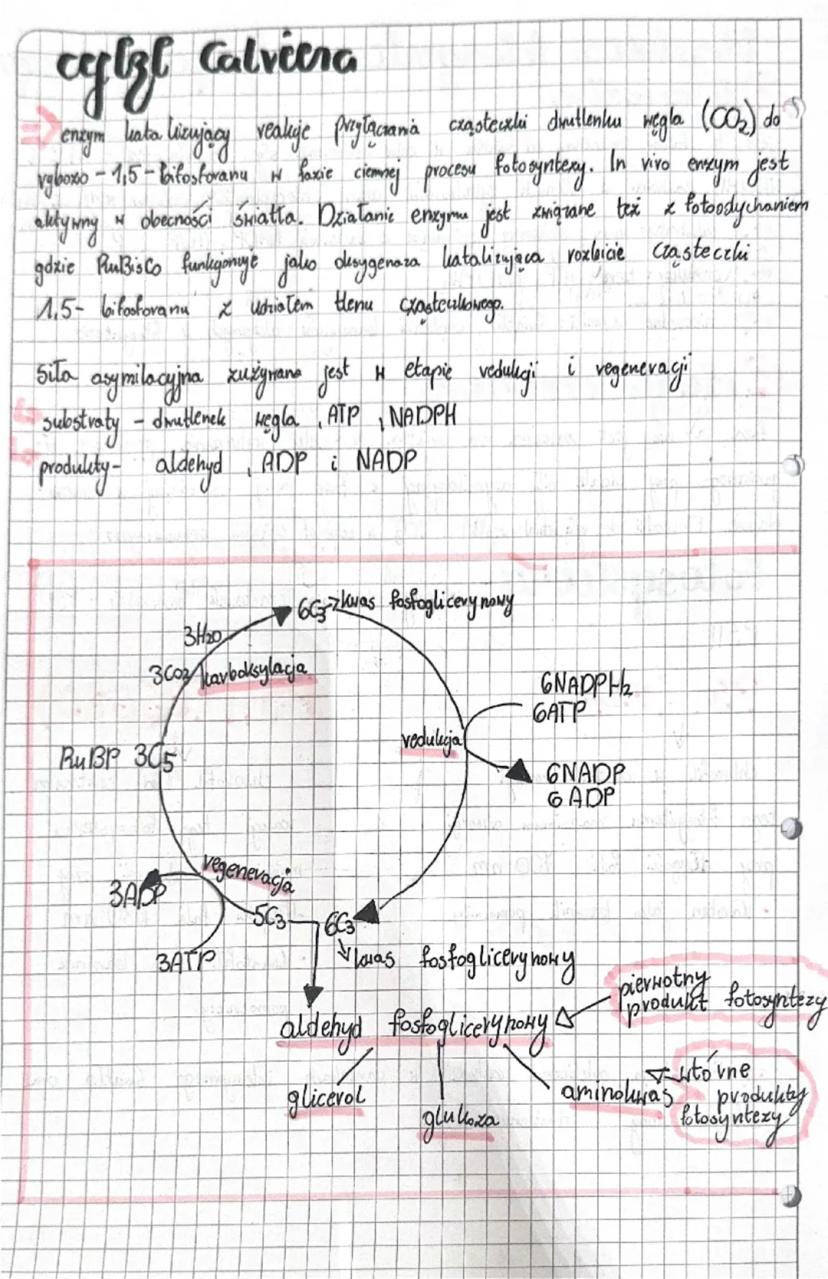 cykl Calviena
enzym katalizujący reakcje przyłączania cząsteczki dwutlenku węgla (CO2) do
rybozo - 1,5 - bifosforanu w fazie ciemnej procesu fotosyntezy. In vivo enzym jest
aktywny w obecności światła. Działanie enzymu jest związane też z fotoodychaniem
gdzie RuBisCo funkcjonuje jako oksygenaza katalizująca rozbicie cząsteczki
1,5- bifosforanu z udziałem tlenu cząsteczkowego.
Siła asymilacyjna zużywana jest w etapie redukcji i regeneracji
substraty - dwutlenek węgla, ATP, NADPH
produkty- aldehyd, ADP i NADP
6C3 → kwas fosfoglicerynowy
3H2O
3CO2 karboksylacja
6NADPH2
6ATP
redukcja
RuBP 3C5
6NADP
6ADP
regeneracja
3ADP
5C3 6C3
3ATP
kwas fosfoglicerynowy
pierwotny
produkt fotosyntezy
aldehyd fosfoglicerynowy
wtórne
glicerol aminokwas produkty
glukoza fotosyntezy